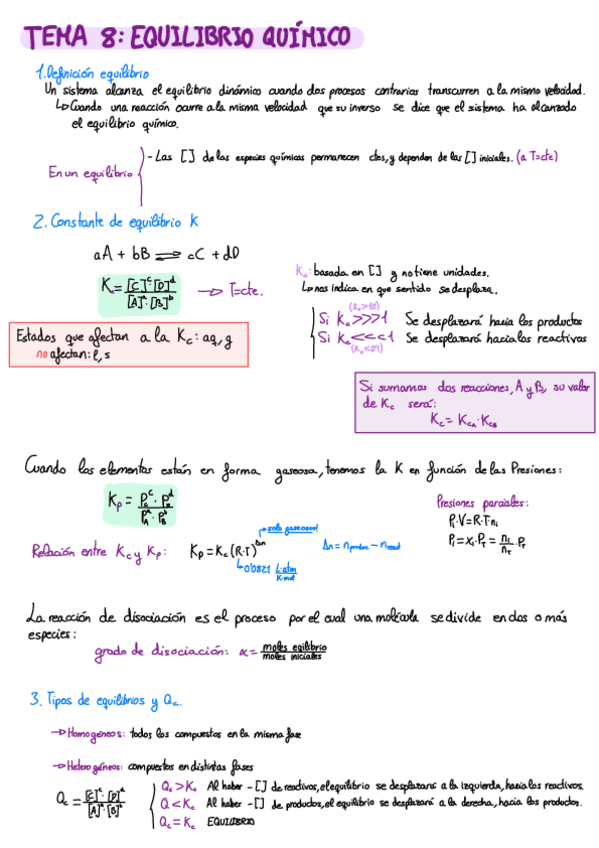 TEMA 8: EQUILIBRIO QUÍMICO
1. Definición equilibrio
Un sistema alcanza el equilibrio dinámico cuando dos procesos contrarios transcurren a la misma velocidad.
↳ Cuando una reacción ocurre a la misma velocidad que su inverso se dice que el sistema ha alcanzado
el equilibrio químico.
En un equilibrio
- Las [] de las especies químicas permanecen ctes, y dependen de las [] iniciales. (a T=cte)
2. Constante de equilibrio K
aA + bB ⇌ cC + dD
K = [C]^c·[D]^d / [A]^a·[B]^b → T=cte.
Kc: basada en [] y no tiene unidades.
↳ nos indica en que sentido se desplaza.
(Kc>10)
Si Kc>>>1 Se desplazará hacia los productos
Si Kc<<<1 Se desplazará hacia los reactivos
(Kc<0'1)
Estados que afectan a la Kc: aq, g
no afectan: l, s
Si sumamos dos reacciones, A y B, su valor
de Kc será:
Kc = KcA · KcB
Cuando los elementos están en forma gaseosa, tenemos la K en función de las Presiones:
Kp = Pc^c · PD^d / PA^a · PB^b
Presiones parciales:
Pi·V=R·T·ni
Pi = xi·PT = ni/nT · PT
Relación entre Kc y Kp:
Kp = Kc (R·T)^Δn
→ solo gaseosos!
↳ 0'0821 L·atm/K·mol
Δn = nproduc − nreact
La reacción de disociación es el proceso por el cual una molécula se divide en dos o más
especies:
grado de disociación: α = moles eqilibrio / moles iniciales
3. Tipos de equilibrios y Qc.
→ Homogéneos: todos los compuestos en la misma fase
→ Heterogéneos: compuestos en distintas fases
Qc = [C]^c·[D]^d / [A]^a·[B]^b
Qc > Kc Al haber - [] de reactivos, el equilibrio se desplazará a la izquierda, hacia los reactivos.
Q < Kc Al haber - [] de productos, el equilibrio se desplazará a la derecha, hacia los productos.
Qc = Kc EQUILIBRIO